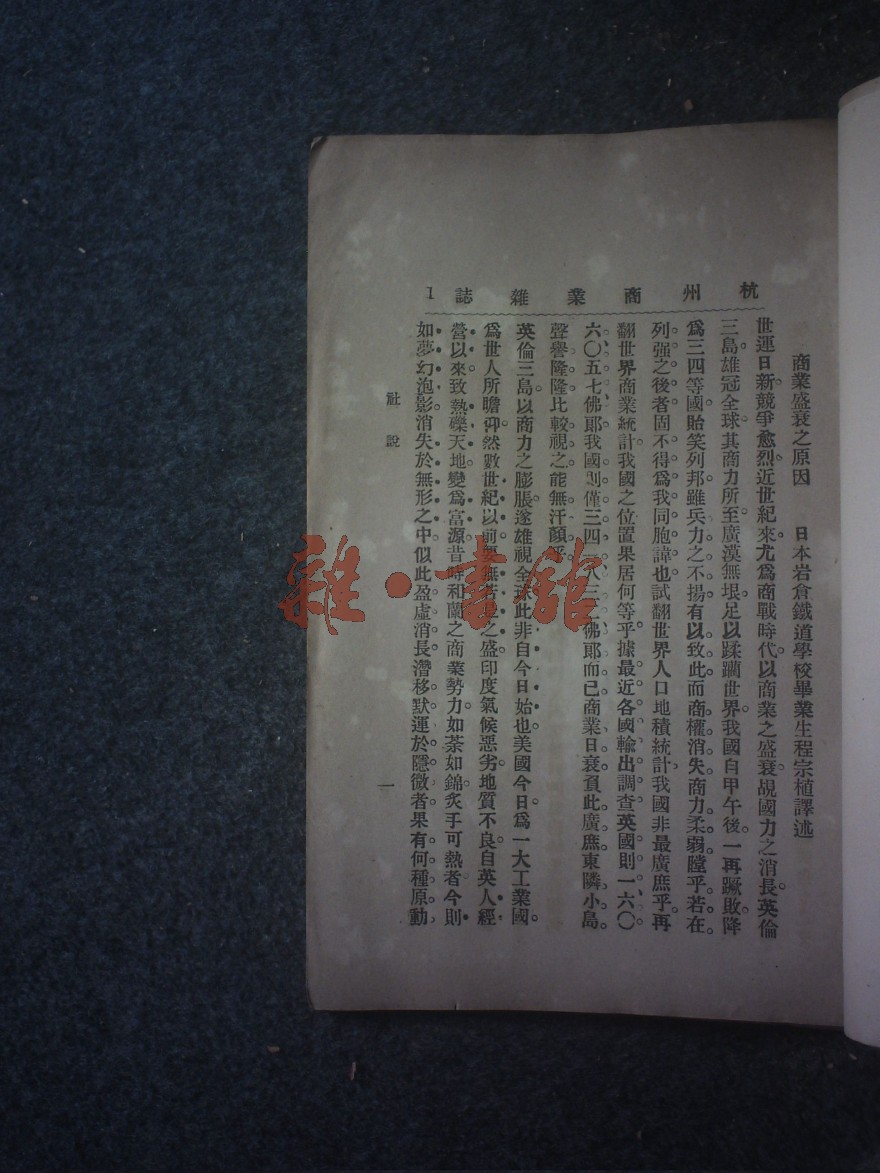 杭州商業雜誌 1
商業盛衰之原因　日本岩倉鐵道學校畢業生程宗植譯述
世運日新。競爭愈烈。近世紀來。尤爲商戰時代。以商業之盛衰。覘國力之消長。英倫
三島。雄冠全球。其商力所至。廣漠無垠。足以蹂躪世界。我國自甲午後。一再蹶敗。降
爲三四等國。貽笑列邦。雖兵力之不揚。有以致此。而商權消失。商力柔弱。瞠乎若在
列强之後者。固不得爲我同胞諱也。試翻世界人口地積統計。我國非最廣庶乎。再
翻世界商業統計。我國之位置。果居何等乎。據最近各國輸出調查。英國則一、六〇
六〇五七佛郎。我國則僅三四 八三 佛郎而已。商業日衰。負此廣庶。東隣小島。
聲譽隆隆。比較視之。能無汗顔乎。
英倫三島。以商力之膨脹。遂雄視全球。此非自今日始也。美國今日爲一大工業國。
爲世人所瞻仰。然數世紀以前。要無若是之盛。印度氣候惡劣。地質不良。自英人經
營以來。致熱礫天地。變爲富源。昔時和蘭之商業勢力。如荼如錦。炙手可熱者。今則
如夢幻泡影。消失於無形之中。似此盈虛消長。潛移默運於隱微者。果有何種原動
社說
一
雜·書館